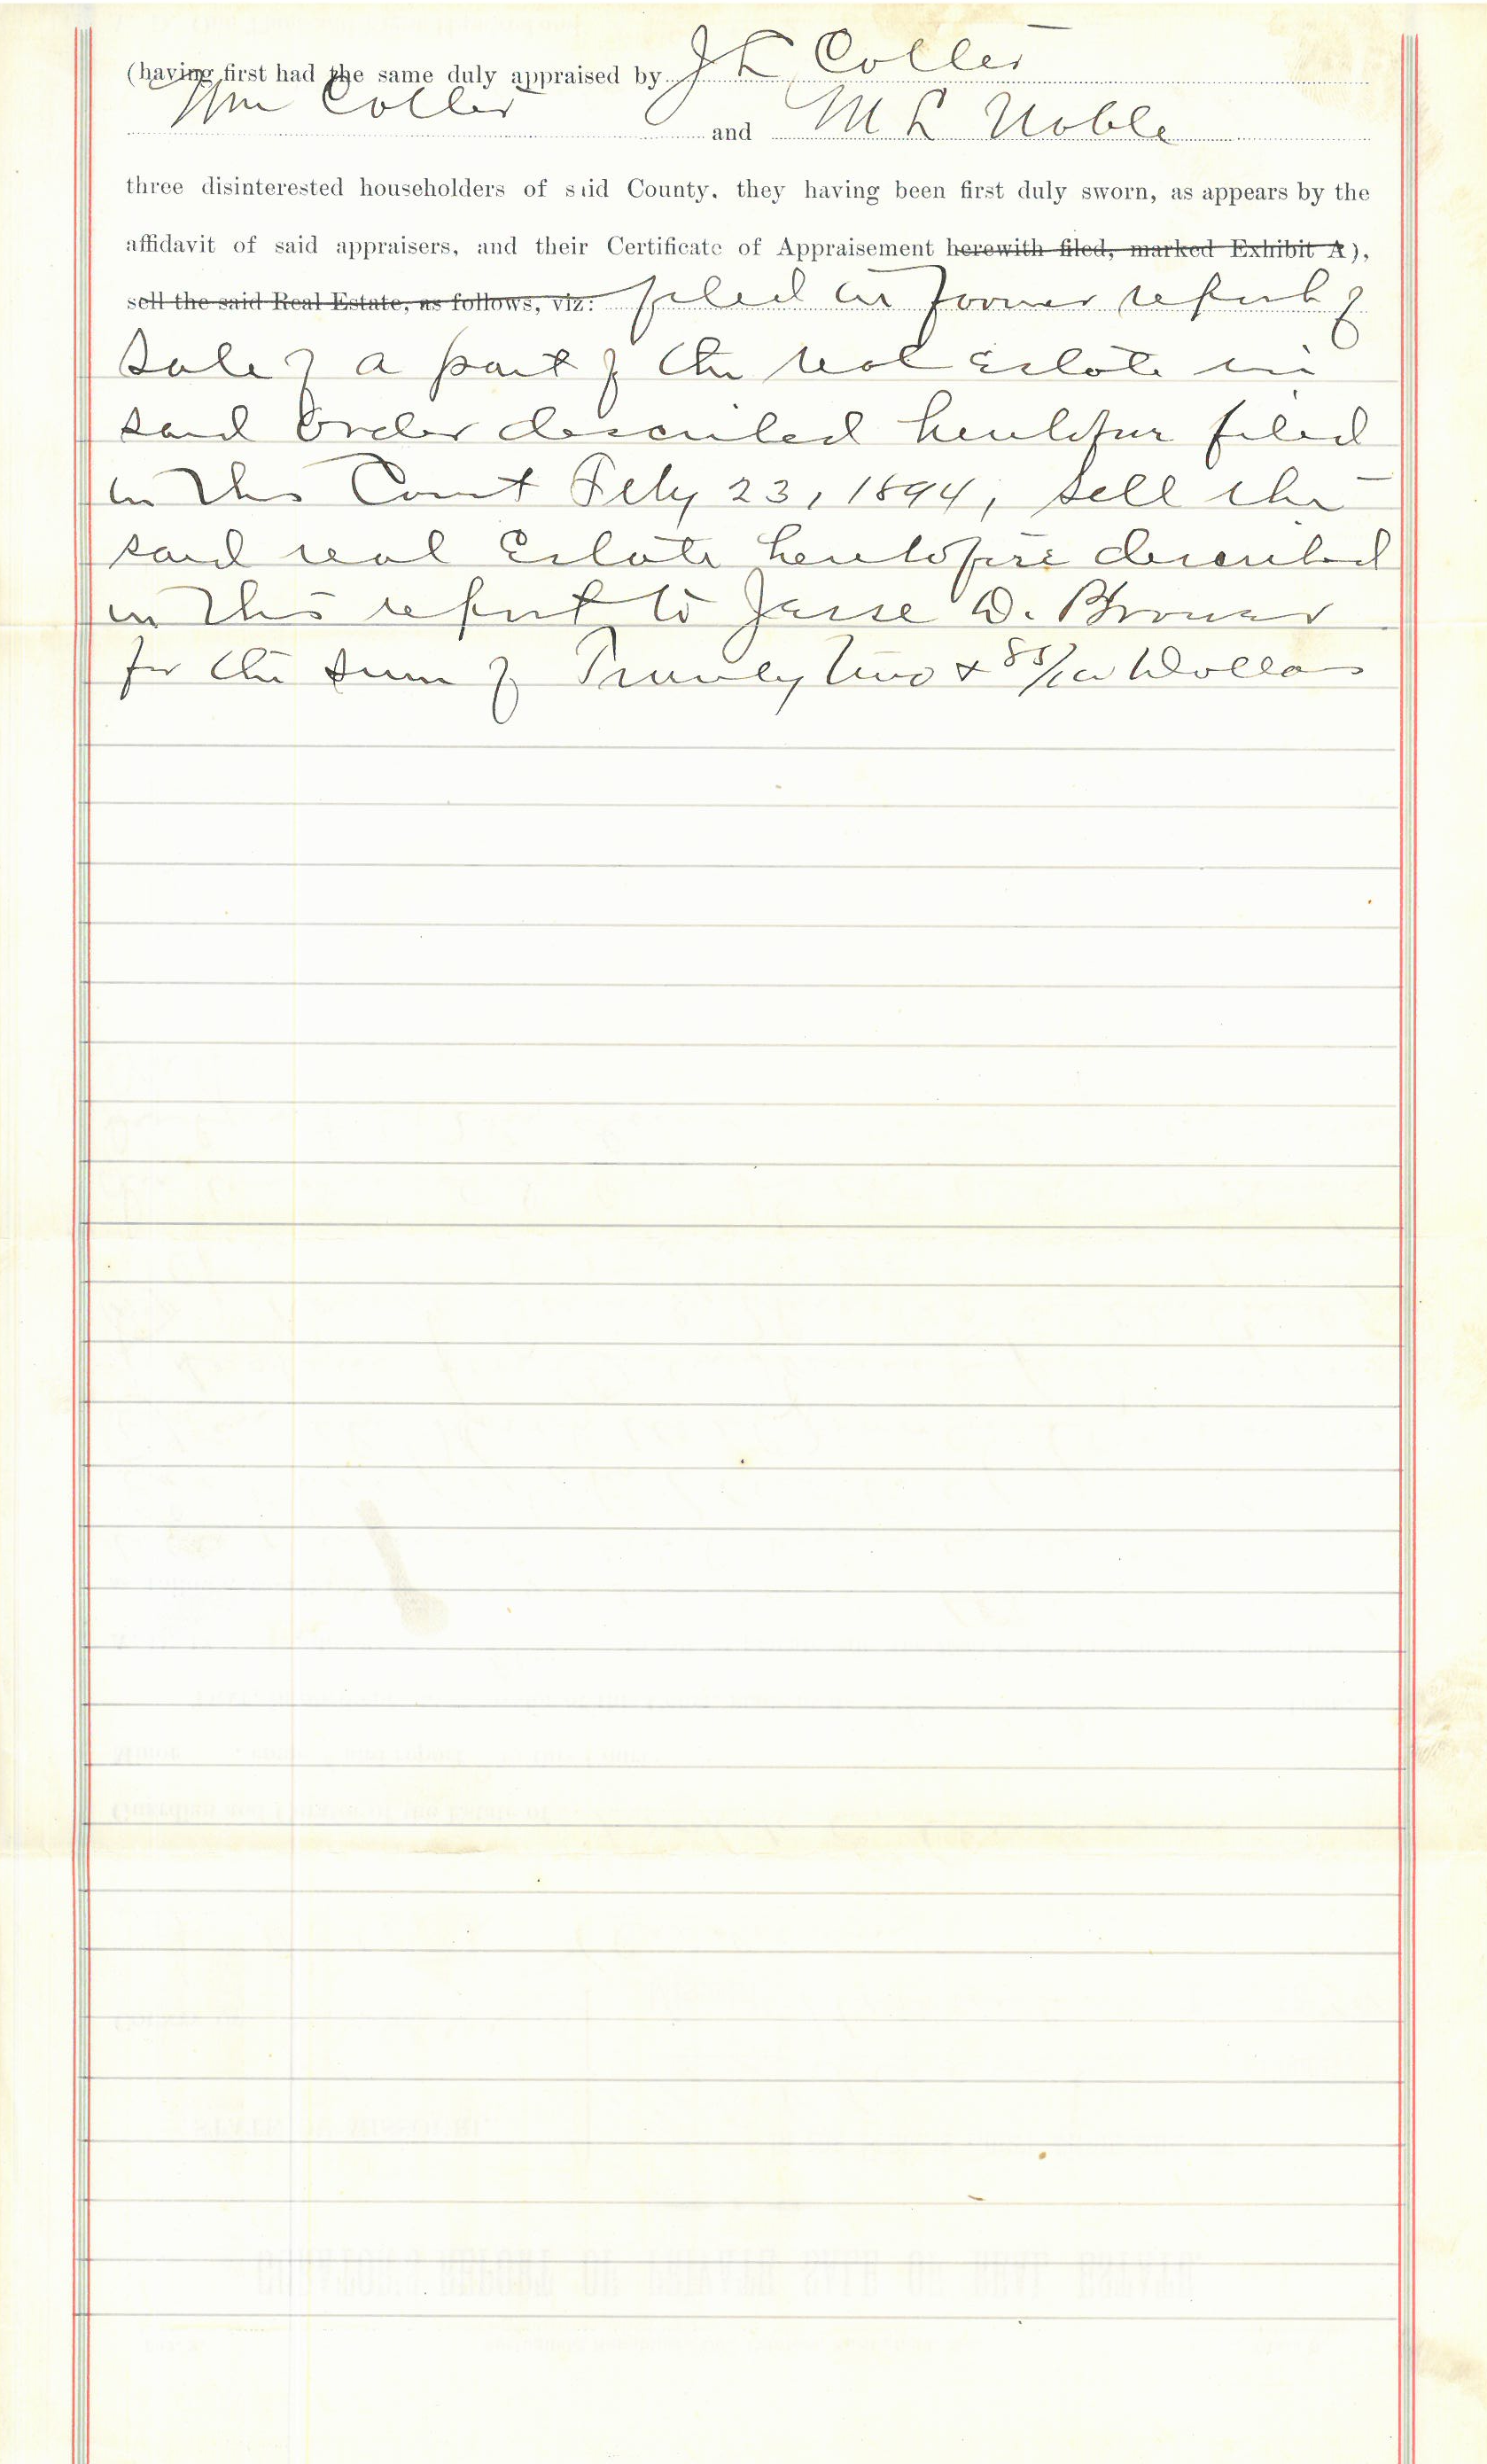 (having first had the same duly appraised by J L Coller
Wm Coller and M L Noble
three disinterested householders of said County, they having been first duly sworn, as appears by the
affidavit of said appraisers, and their Certificate of Appraisement herewith filed, marked Exhibit A),
sell the said Real Estate, as follows, viz: filed in Former report of
Sale of a part of the real Estate in
said Order described heretofore filed
in this Court Feby 23, 1894, sell the
said real Estate heretofore described
in this report to Jesse D. Brower
for the sum of Twenty two + 85/100 Dollars